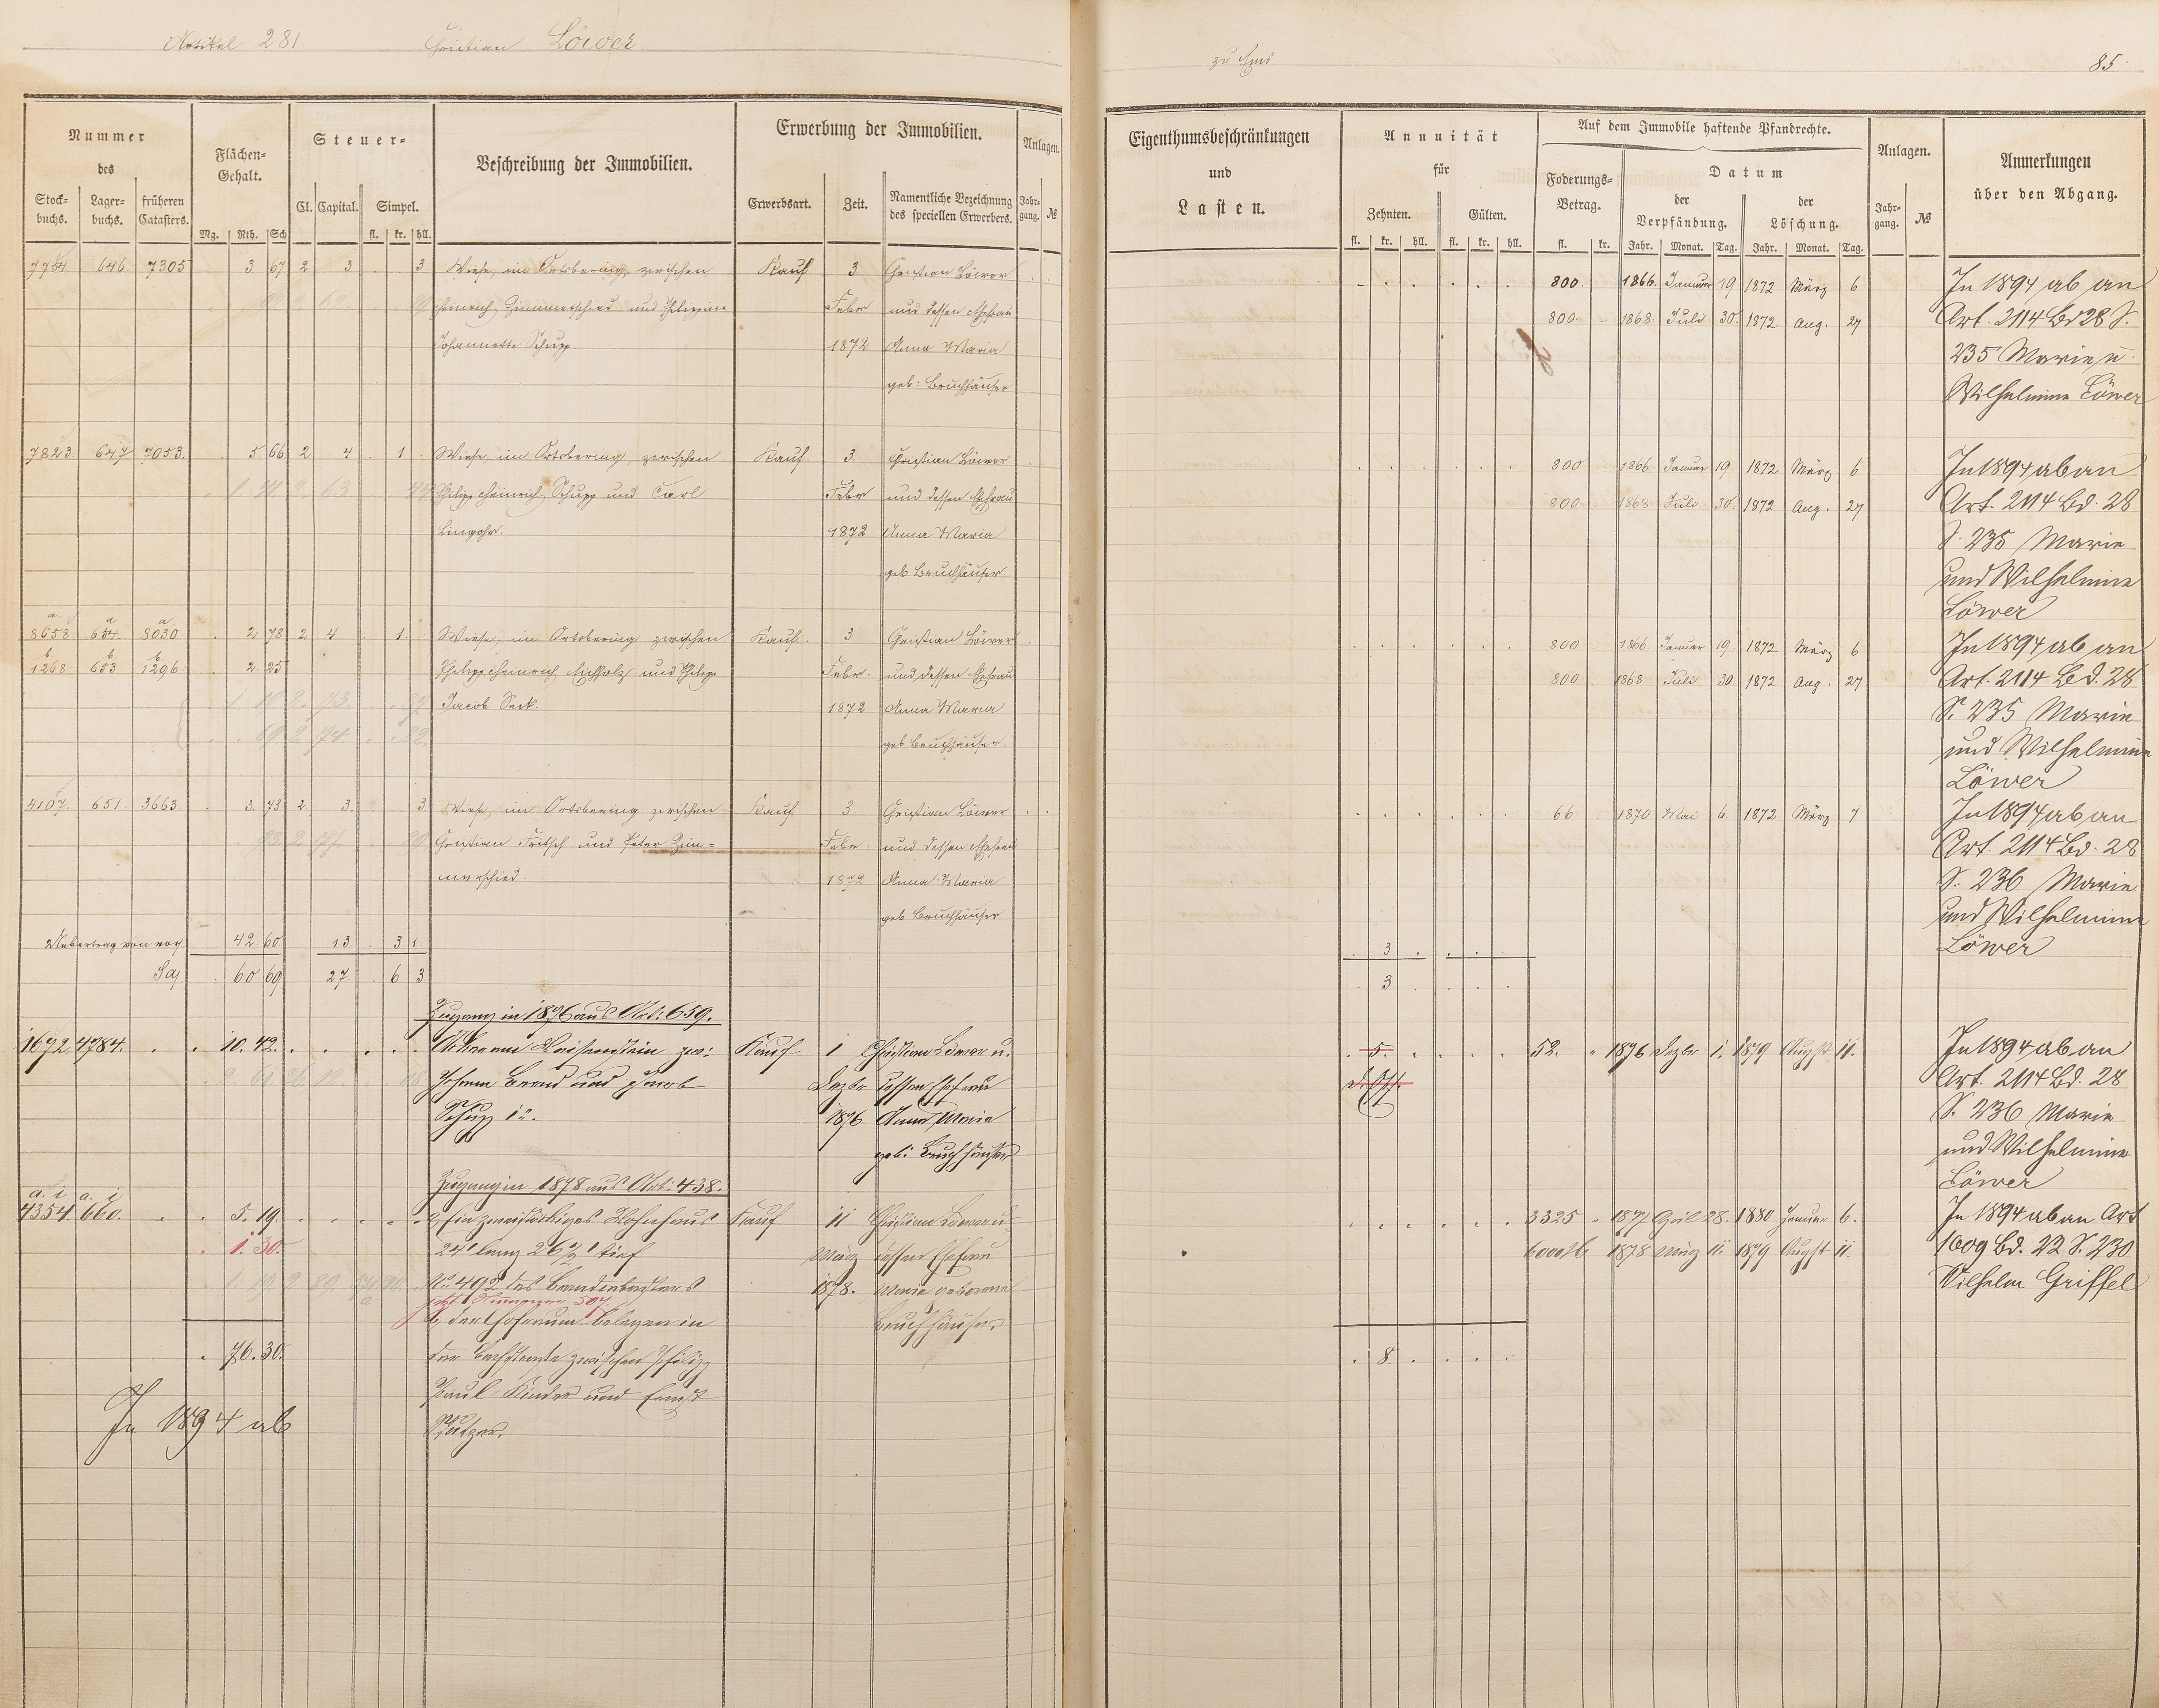 Artikel 281 Christian Löwer
Nummer
des
Stock-
buchs.
Lager-
buchs.
früheren
Catasters.
Flächen-
Gehalt.
Mg. Rth. Sch
Steuer-
Cl. Capital. Simpel.
fl. kr. hll.
Beschreibung der Immobilien.
Erwerbung der Immobilien.
Erwerbsart. Zeit.
Namentliche Bezeichnung
des speciellen Erwerbers.
Anlagen.
Jahr-
gang. №
646 7305 3 67 2 3 . 3 Wiese, im Ortsbering, zwischen Kauf 3 Christian Löwer
Heinrich Zimmerschied und Philippine Febr und dessen Ehefrau
Johannette Schupp. 1872 Anna Maria
geb: Bruchhäuser
7823 647 7053 5 66 2 4 . 1 Wiese, im Ortsbering, zwischen Kauf 3 Christian Löwer
Philipp Heinrich Schupp und Carl Febr und dessen Ehefrau
Lingohr. 1872 Anna Maria
geb Bruchhäuser
a. a a
8658 654 8030 . 2 78 2 4 . 1. Wiese, im Ortsbering zwischen Kauf. 3 Christian Löwer
b. b. b
1268 653 1296 . 2 25 Philipp Heinrich Eichholz und Philipp Febr. und dessen Ehefrau
Jacob Seck. 1872 Anna Maria
geb Bruchhäuser
4107. 651 3663 . 3. 73 2. 3. 3 Wiese, im Ortsbering zwischen Kauf 3 Christian Löwer
Christian Fritsch und Peter Zim= Febr und dessen Ehefrau
merschied. 1872 Anna Maria
geb Bruchhäuser
Uebertrag von 42 60 13 . 3 1
Sa 60 69 27 . 6 3
Zugang in 1876 aus Art: 659.
1672 4784. . . 10. 42. Acker am zw: Kauf 1 Christian Löwer u.
Johann und Jacob Dezbr dessen Ehefrau
Schupp 1876 Anna Maria
geb: Bruchhäuser
Zugang in 1878 aus Art: 438.
a. 1 a. 1
4354 660. . . 5. 19. a, Ein zweistöckiges Wohnhaus Kauf 11 Christian Löwer u
1. 30. 24' lang 26½' tief März dessen Ehefrau
No 492 des Brandkatasters 1878. Maria geborene
jetzt Nummer 507
b, der Hofraum belegen in Bruchhäuser.
. 76. 30. der zwischen Philipp
Paul Kinder und Ernst
In 1894 ab
zu Ems 85.
Eigenthumsbeschränkungen
und
Lasten.
Annuität
für
Zehnten. Gülten.
fl. kr. hll. fl. kr. hll.
Auf dem Immobile haftende Pfandrechte.
Foderungs-
Betrag.
fl. kr.
Datum
der
Verpfändung.
Jahr. Monat. Tag.
der
Löschung.
Jahr. Monat. Tag.
Anlagen.
Jahr-
gang. №
Anmerkungen
über den Abgang.
800. 1866. Januar 19 1872 März 6 In 1894 ab an
800. 1868 Juli 30. 1872 Aug. 27 Art. 2114 Bd 28 S.
235 Marie u.
Wilhelmine Löwer
800 1866 Januar 19. 1872 März 6 In 1894 ab an
800 1868 Juli 30. 1872 Aug. 27 Art. 2114 Bd. 28
S. 235 Marie
und Wilhelmine
Löwer
800 1866 Januar 19. 1872 März 6 In 1894 ab an
800 1868 Juli 30 1872 Aug. 27 Art. 2114 Bd. 28
S. 235 Marie
und Wilhelmine
Löwer
66 1870 Mai 6. 1872 März 7 In 1894 ab an
Art. 2114 Bd. 28
S. 236 Marie
und Wilhelmine
. 3 . Löwer
. 3
. 5. 52. 1876 Dezbr 1. 1879 Augst 11. In 1894 ab an
Art. 2114 Bd. 28
S. 236 Marie
und Wilhelmine
Löwer
3325 1877 April 28. 1880 Januar 6. In 1894 ab an Art
6000 M 1878 März 11. 1879 Augst 11. 1609 Bd. 22 S. 230
Wilhelm Griffel
. 8.